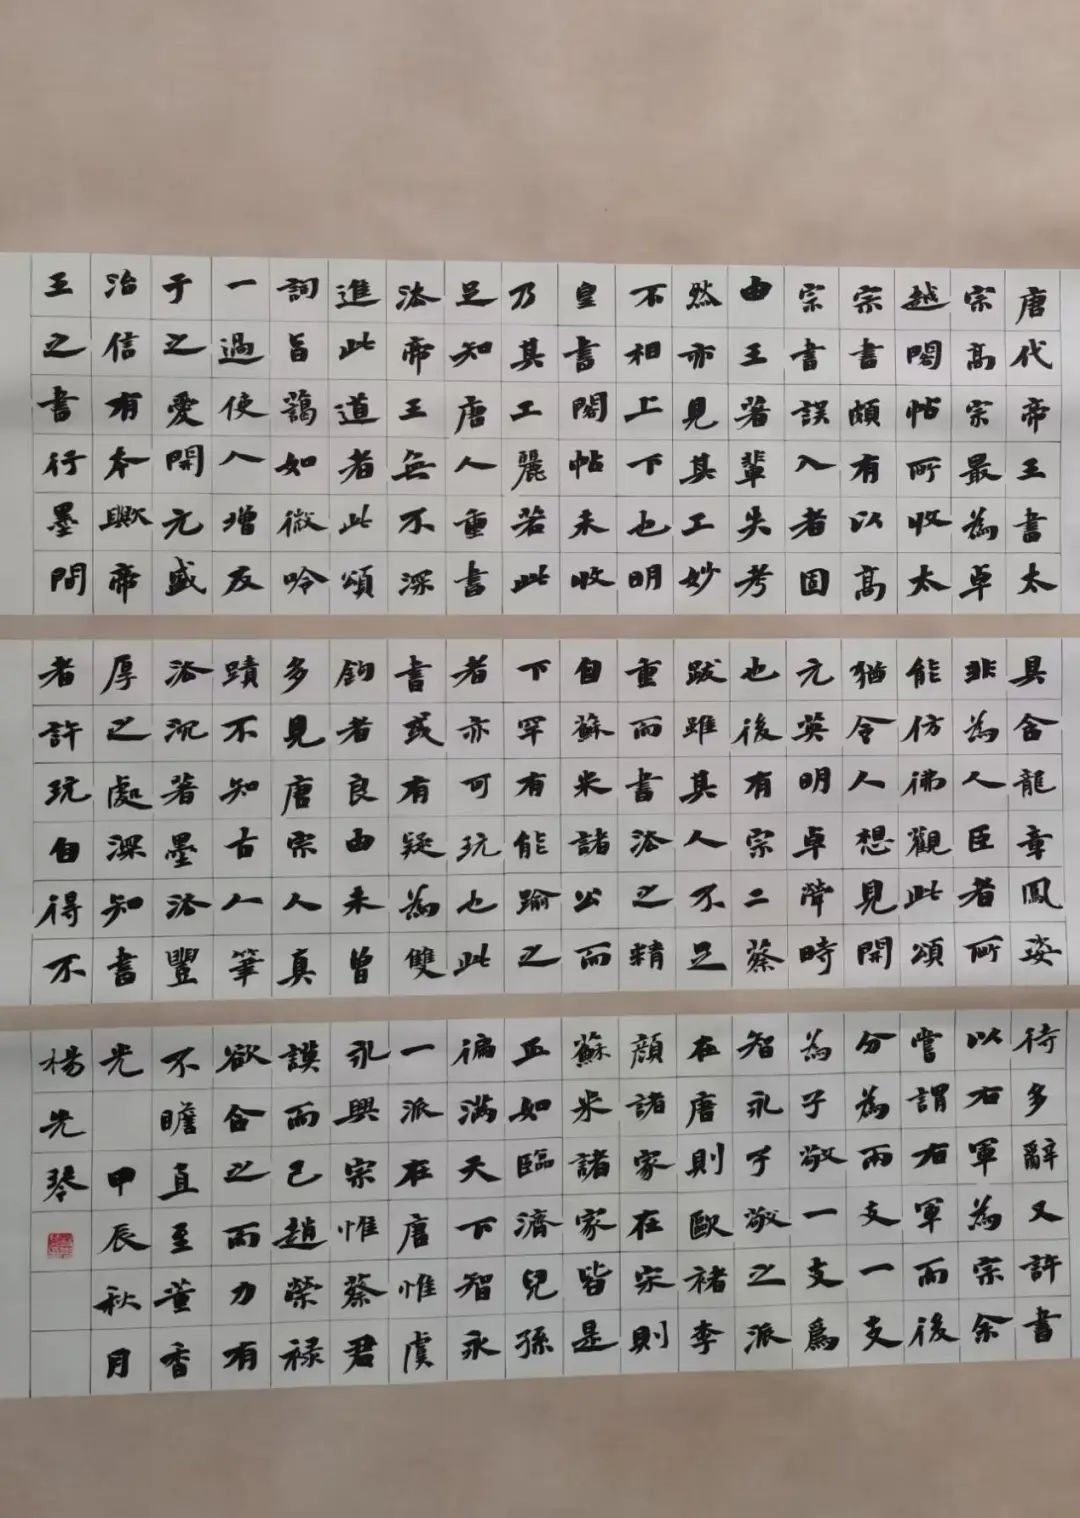 唐代帝王書太
宗高宗最為卓
越閣帖所收太
宗書頗有以高
宗書誤入者固
由王著輩失考
然亦見其工妙
不相上下也明
皇書閣帖未收
乃其工麗若此
足知唐人重書
法帝王無不深
進此道者此頌
詞旨藹如微吟
一過使人增友
于之愛開元盛
治信有本歟帝
王之書行墨間
具含龍章鳳姿
非為人臣者所
能仿彿觀此頌
猶令人想見開
元英明卓犖時
也後有宗二蔡
跋雖其人不足
重而書法之精
自蘇米諸公而
下罕有能踰之
者亦可玩也此
書或有疑為雙
鉤者良由未曾
多見唐宗人真
蹟不知古人筆
法沉著墨法豐
厚之處深知書
者許玩自得不
待多辭又許書
以右軍為宗余
嘗謂右軍而後
分為兩支一支
為子敬一支爲
智永子敬之派
在唐則歐褚李
顔諸家在宋則
蘇米諸家皆是
丘如臨濟兒孫
徧滿天下智永
一派在唐惟虞
永興宗惟蔡君
謨而已趙榮禄
欲合之而力有
不瞻直至董香
光 甲辰秋月
楊光琴